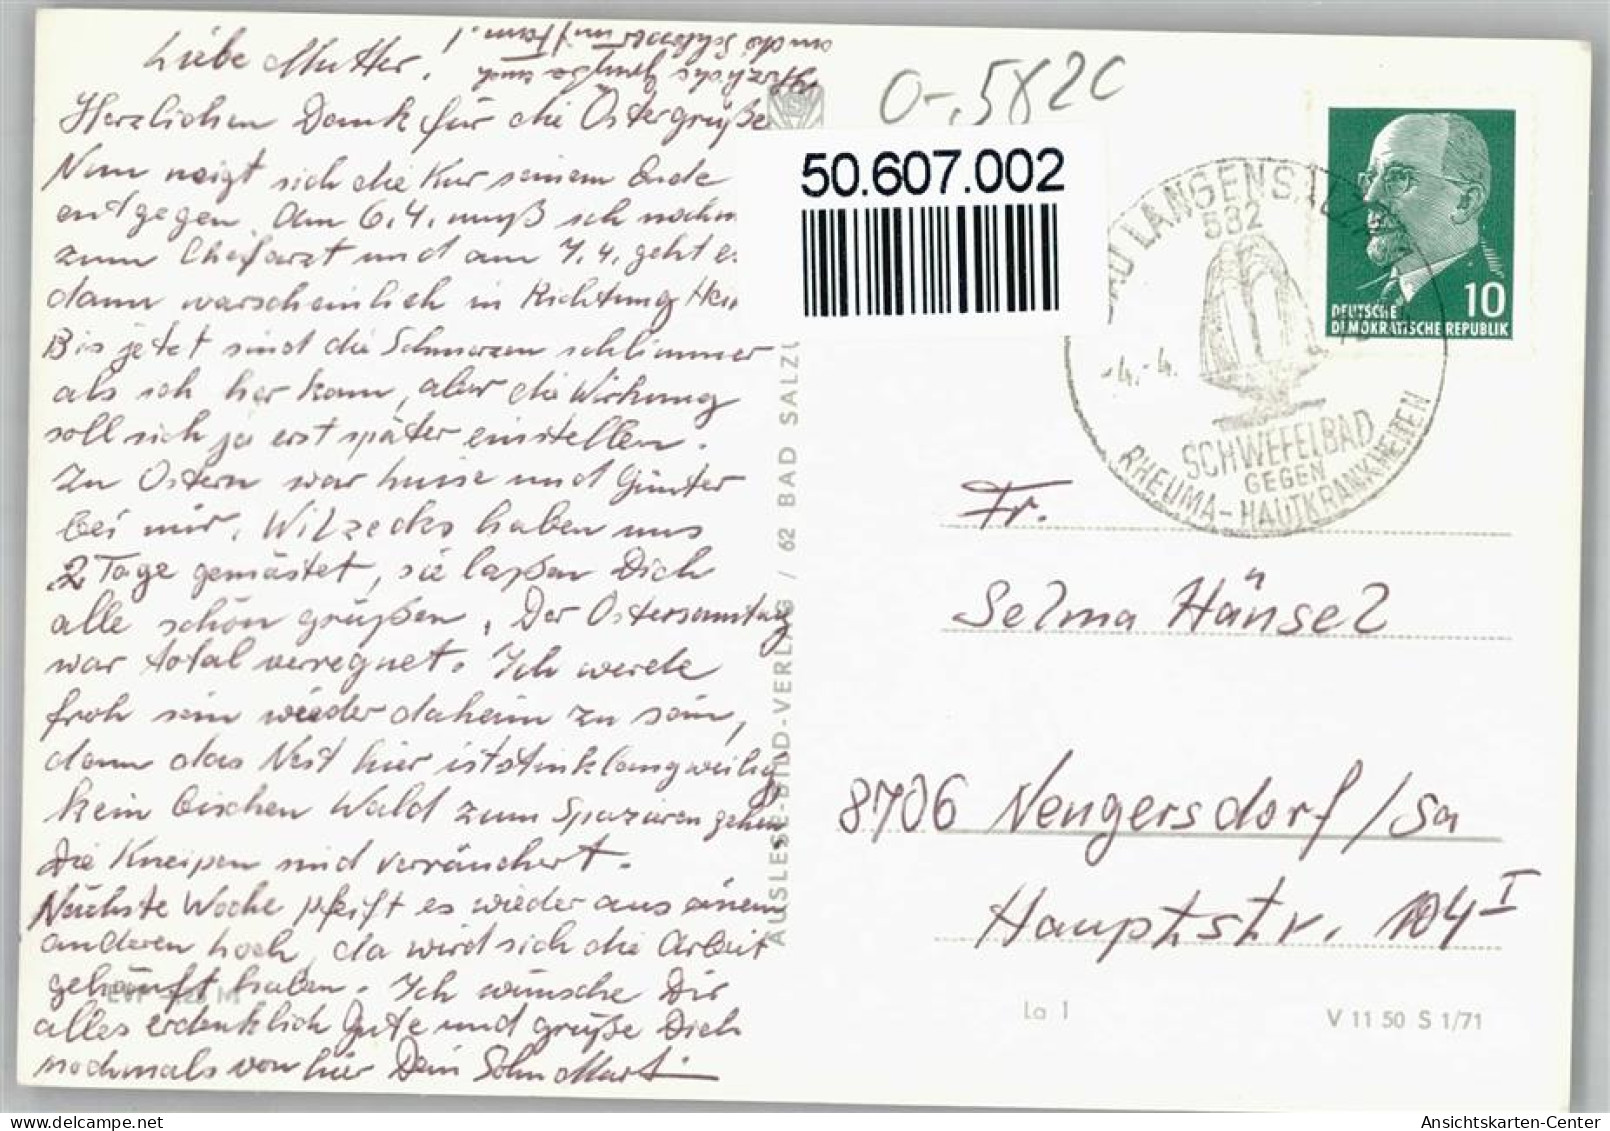 Liebe Mutter!
Herzlichen Dank für die Ostergrüße
Nun neigt sich die Kur seinem Ende
entgegen. Am 6.4. muß ich nochm
zum Chefarzt und am 7.4. geht e
dann warscheinlich in Richtung Hei
Bis jetzt sind die Schmerzen schlimmer
als ich her kam, aber die Wirkung
soll sich ja erst später einstellen.
Zu Ostern war und Günter
bei mir. Wilzecks haben uns
2 Tage gemästet, sie laßen Dich
alle schön grüßen. Der Ostersonntag
war total verregnet. Ich werde
froh sein wieder daheim zu sein,
denn das Nest hier ist stinklangweilig,
kein bischen Wald zum Spazieren gehen
die Kneipen sind verräuchert.
Nächste Woche pfeift es wieder aus einem
anderen Loch, da wird sich die Arbeit
gehäuft haben. Ich wünsche Dir
alles erdenklich Gute und grüße Dich
nochmals von hier Dein Sohn Martin
Herzliche Grüße auch
an die Schlosser und Fam.!
EVP
AUSLESE-BILD-VERLAG / 62 BAD SALZU
O-582C
50.607.002
BAD LANGENSALZA
582
-4.-4.
SCHWEFELBAD
GEGEN
RHEUMA-HAUTKRANKHEITEN
10
DEUTSCHE
DEMOKRATISCHE REPUBLIK
Fr.
Selma Hänsel
8706 Neugersdorf/Sa
Hauptstr. 104 I
La 1
V 11 50 S 1/71
Ansichtskarten-Center